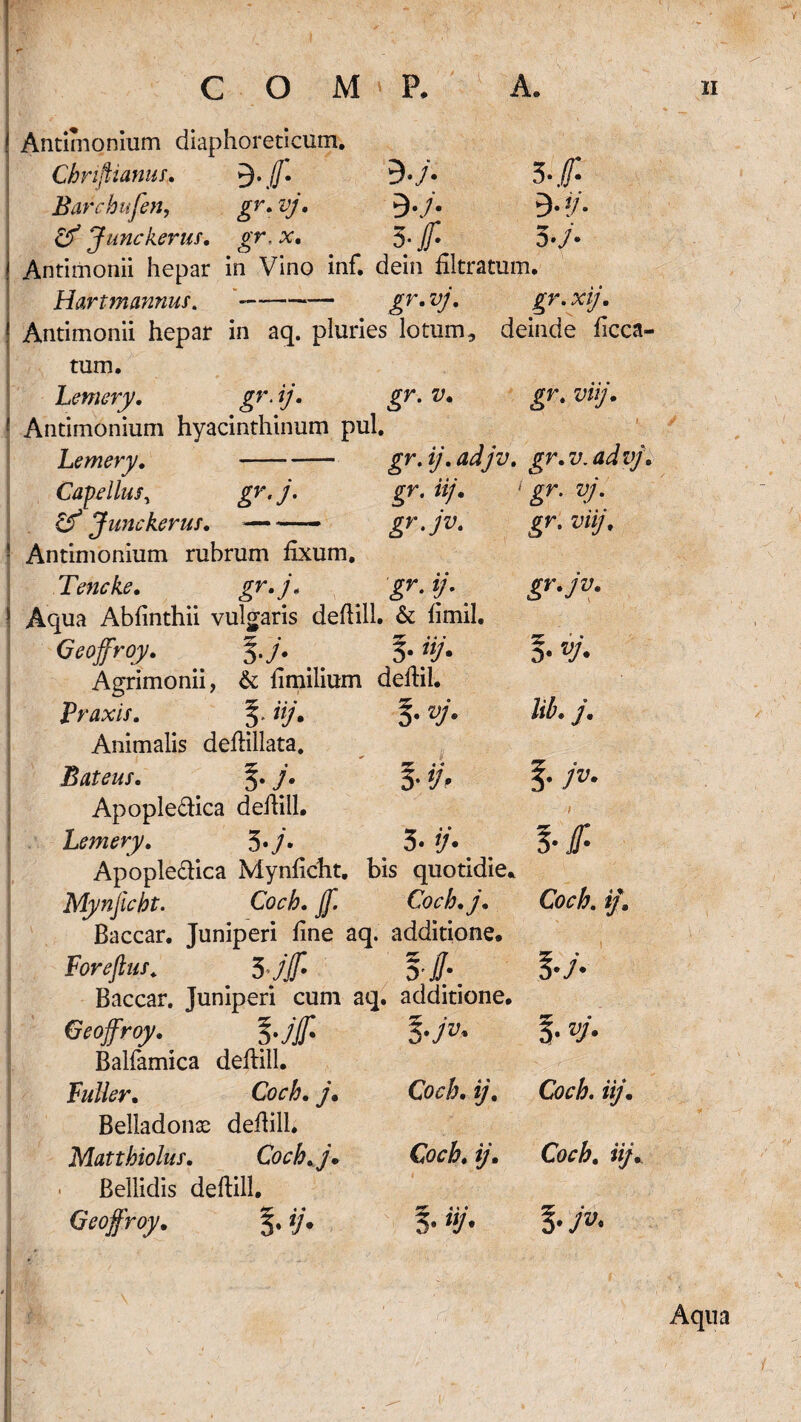 COMP. A. 11
Antimonium diaphoreticum.
Chriſtianus. ℈. ſſ. ℈. j. ʒ. ſſ.
Barchuſen, gr. vj. ℈. j. ℈. ij.
& Junckerus. gr. x. ʒ. ſſ. ʒ. j.
Antimonii hepar in Vino inf. dein filtratum.
Hartmannus. ——— gr. vj. gr. xij.
Antimonii hepar in aq. pluries lotum, deinde ſicca-
tum.
Lemery. gr. ij. gr. v. gr. viij.
Antimonium hyacinthinum pul.
Lemery. ——— gr. ij. ad jv. gr. v. ad vj.
Capellus, gr. j. gr. iij. gr. vj.
& Junckerus. ——— gr. jv. gr. viij.
Antimonium rubrum fixum.
Tencke. gr. j. gr. ij. gr. jv.
Aqua Abſinthii vulgaris deſtill. & ſimil.
Geoffroy. ℥. j. ℥. iij. ℥. vj.
Agrimonii, & ſimilium deſtil.
Praxis. ℥. iij. ℥. vj. lib. j.
Animalis deſtillata.
Bateus. ℥. j. ℥. ij. ℥. jv.
Apoplectica deſtill.
Lemery. ʒ. j. ʒ. ij. ℥. ſſ.
Apoplectica Mynſicht. bis quotidie.
Mynſicht. Coch. ſſ. Coch. j. Coch. ij.
Baccar. Juniperi ſine aq. additione.
Foreſtus. ʒ. jſſ. ℥. ſſ. ℥. j.
Baccar. Juniperi cum aq. additione.
Geoffroy. ℥. jſſ. ℥. jv. ℥. vj.
Balſamica deſtill.
Fuller. Coch. j. Coch. ij. Coch. iij.
Belladonæ deſtill.
Matthiolus. Coch. j. Coch. ij. Coch. iij.
Bellidis deſtill.
Geoffroy. ℥. ij. ℥. iij. ℥. jv.
Aqua